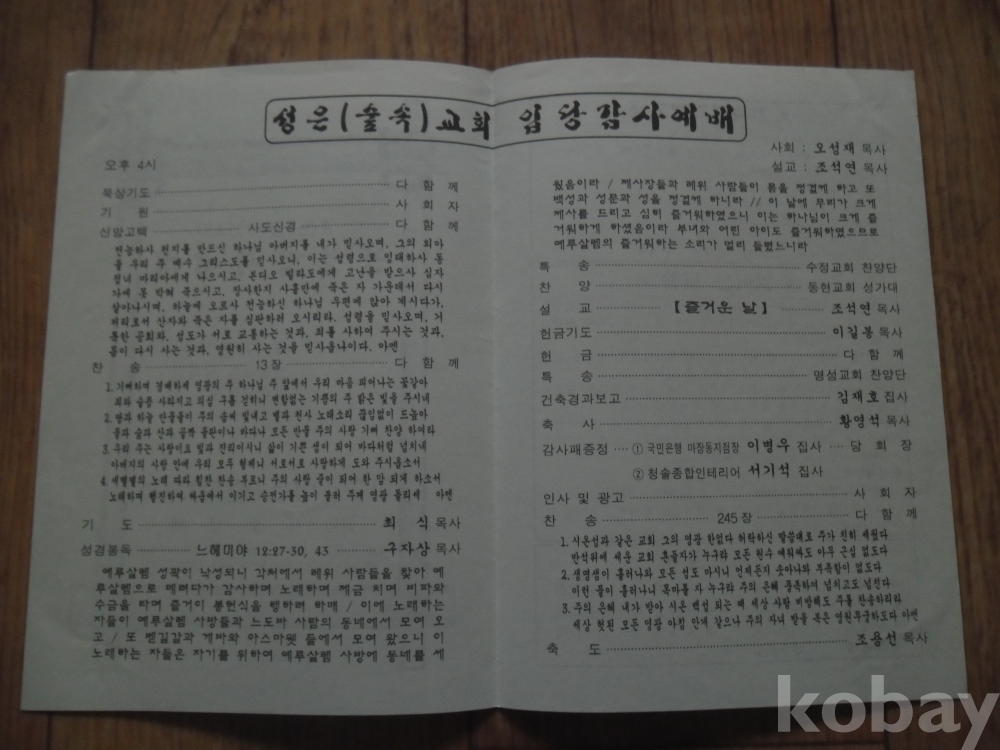 성은(숲속)교회 입당감사예배
오후 4시
묵상기도 다 함 께
기 원 사 회 자
신앙고백 사도신경 다 함 께
전능하사 천지를 만드신 하나님 아버지를 내가 믿사오며, 그의 외아
들 우리 주 예수 그리스도를 믿사오니, 이는 성령으로 잉태하사 동
정녀 마리아에게 나으시고, 본디오 빌라도에게 고난을 받으사 십자
가에 못 박혀 죽으시고, 장사한지 사흘만에 죽은 자 가운데서 다시
살아나시며, 하늘에 오르사 전능하신 하나님 우편에 앉아 계시다가,
저리로서 산자와 죽은 자를 심판하러 오시리라. 성령을 믿사오며, 거
룩한 공회와, 성도가 서로 교통하는 것과, 죄를 사하여 주시는 것과,
몸이 다시 사는 것과, 영원히 사는 것을 믿사옵나이다. 아멘
찬 송 13장 다 함 께
1. 기뻐하며 경배하세 영광의 주 하나님 주 앞에서 우리 마음 피어나는 꽃같아
죄와 슬픔 사라지고 의심 구름 걷히니 변함없는 기쁨의 주 밝은 빛을 주시네
2. 땅과 하늘 만물들이 주의 솜씨 빛내고 별과 천사 노래소리 끊임없이 드높아
물과 숲과 산과 골짝 들판이나 바다나 모든 만물 주의 사랑 기뻐 찬양 하여라
3. 우리 주는 사랑이요 빛과 진리이시니 삶이 기쁜 샘이 되어 바다처럼 넘치네
아버지의 사랑 안에 우리 모두 형제니 서로서로 사랑하게 도와 주시옵소서
4. 새벽별의 노래 따라 힘찬 찬송 부르니 주의 사랑 줄이 되어 한 맘 되게 하소서
노래하며 행진하여 싸움에서 이기고 승전가를 높이 불러 주께 영광 돌리세 아멘
기 도 최 식 목사
성경봉독 느헤미야 12:27-30, 43 구자상 목사
예루살렘 성곽이 낙성되니 각처에서 레위 사람들을 찾아 예
루살렘으로 데려다가 감사하며 노래하며 제금 치며 비파와
수금을 타며 즐거이 봉헌식을 행하려 하매 / 이에 노래하는
자들이 예루살렘 사방들과 느도바 사람의 동네에서 모여 오
고 / 또 벧길갈과 게바와 아스마웻 들에서 모여 왔으니 이
노래하는 자들은 자기를 위하여 예루살렘 사방에 동네를 세
사회 : 오성재 목사
설교 : 조석연 목사
웠음이라 / 제사장들과 레위 사람들이 몸을 정결케 하고 또
백성과 성문과 성을 정결케 하니라 // 이 날에 무리가 크게
제사를 드리고 심히 즐거워하였으니 이는 하나님이 크게 즐
거워하게 하셨음이라 부녀와 어린 아이도 즐거워하였으므로
예루살렘의 즐거워하는 소리가 멀리 들렸느니라
특 송 수정교회 찬양단
찬 양 동현교회 성가대
설 교 【즐거운 날】 조석연 목사
헌금기도 이길봉 목사
헌 금 다 함 께
특 송 명성교회 찬양단
건축경과보고 김재호 집사
축 사 황영석 목사
감사패증정 ① 국민은행 마장동지점장 이병우 집사 당 회 장
② 청솔종합인테리어 서기석 집사
인사 및 광고 사 회 자
찬 송 245장 다 함 께
1. 시온성과 같은 교회 그의 영광 한없다 허락하신 말씀대로 주가 친히 세웠다
반석위에 세운 교회 흔들자가 누구랴 모든 원수 에워싸도 아무 근심 없도다
2. 생명샘이 흘러나와 모든 성도 마시니 언제든지 솟아나와 부족함이 없도다
이런 물이 흘러나니 목마를 자 누구랴 주의 은혜 풍족하여 넘치고도 넘친다
3. 주의 은혜 내가 받아 시온 백성 되는 때 세상 사람 비방해도 주를 찬송하리라
세상 헛된 모든 영광 아침 안개 같으나 주의 자녀 받을 복은 영원무궁하도다 아멘
축 도 조용선 목사
kobay